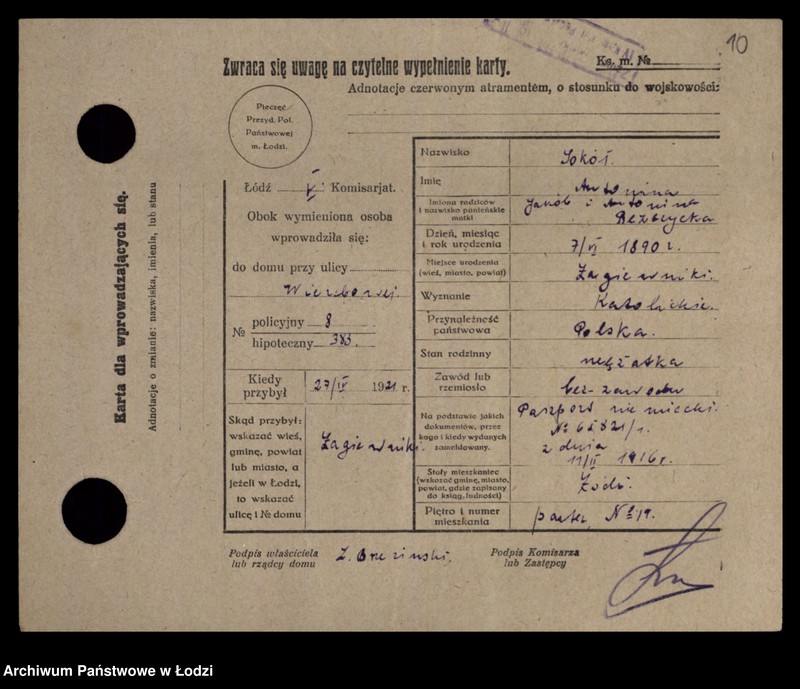 10
Zwraca się uwagę na czytelne wypełnienie karty.
Ks. m. №
Adnotacje czerwonym atramentem, o stosunku do wojskowości:
Pieczęć
Prezyd. Pol.
Państwowej
m. Łodzi.
Karta dla wprowadzających się.
Adnotacje o zmianie: nazwiska, imienia, lub stanu
Łódź V Komisarjat.
Obok wymieniona osoba
wprowadziła się:
do domu przy ulicy
Wierzbowej
№ policyjny 8
hipoteczny 383.
Kiedy przybył 27/IV 1921 r.
Skąd przybył:
wskazać wieś,
gminę, powiat
lub miasto, a
jeżeli w Łodzi,
to wskazać
ulicę i № domu
Łagiewniki.
Nazwisko Sokół.
Imię Antonina
Imiona rodziców
i nazwisko panieńskie
matki
Jakób i Antonina
Dzień, miesiąc
i rok urodzenia
7/VI 1890 r.
Miejsce urodzenia
(wieś, miasto, powiat)
Łagiewniki.
Wyznanie Katolickie.
Przynależność
państwowa
Polska.
Stan rodzinny mężatka
Zawód lub
rzemiosło
bez zawodu
Na podstawie jakich
dokumentów, przez
kogo i kiedy wydanych
zameldowany.
Paszport niemiecki.
№ 62821/1.
z dnia
11/II 1916 r.
Stały mieszkaniec
(wskazać gminę, miasto,
powiat, gdzie zapisany
do ksiąg, ludności)
Łódź.
Piętro i numer
mieszkania
parter, № 19.
Podpis właściciela
lub rządcy domu
Podpis Komisarza
lub Zastępcy
Archiwum Państwowe w Łodzi